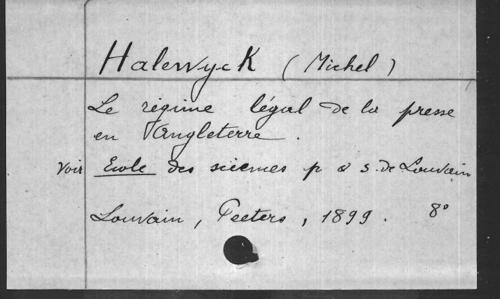 Halewyck (Michel)
Le régime légal de la presse
en Angleterre.
Voir Ecole des sciences p & s. de Louvain
Louvain, Peeters, 1899. 8°